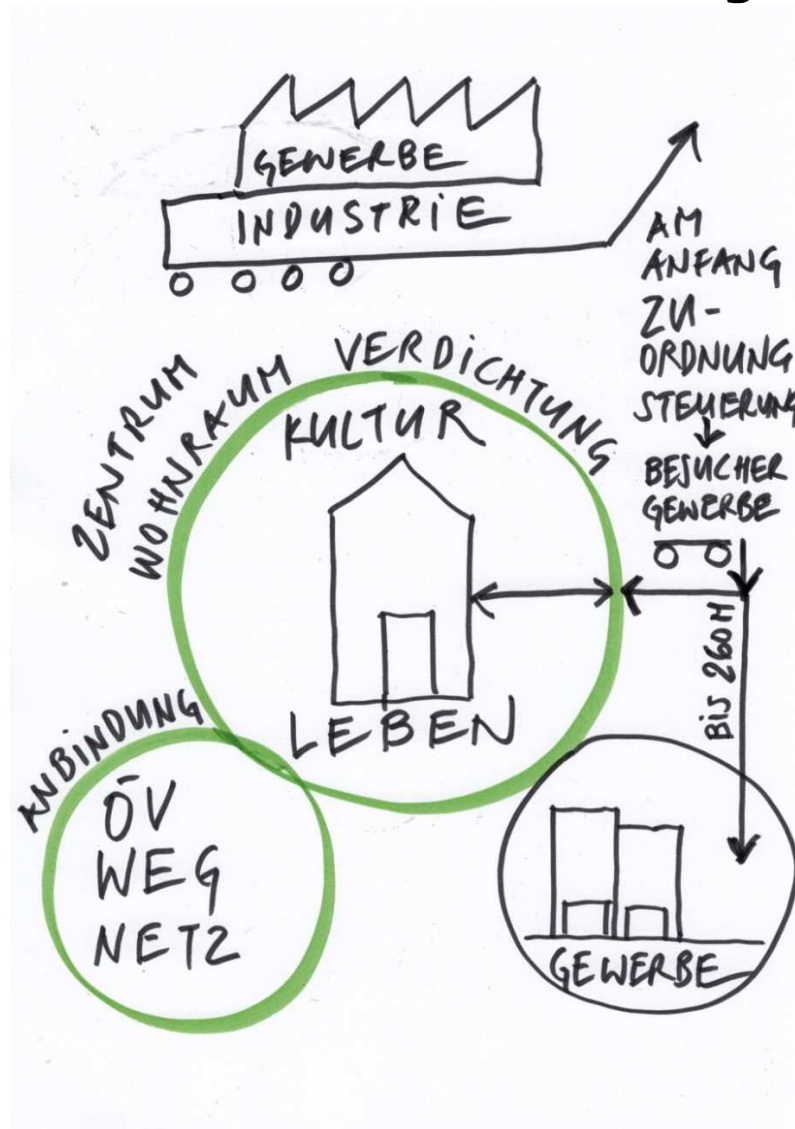 GEWERBE
INDUSTRIE
AM
ANFANG
ZU-
ORDNUNG
STEUERUNG
BESUCHER
GEWERBE
BIS 260M
ZENTRUM
WOHNRAUM VERDICHTUNG
KULTUR
LEBEN
ANBINDUNG
ÖV
WEG
NETZ
GEWERBE